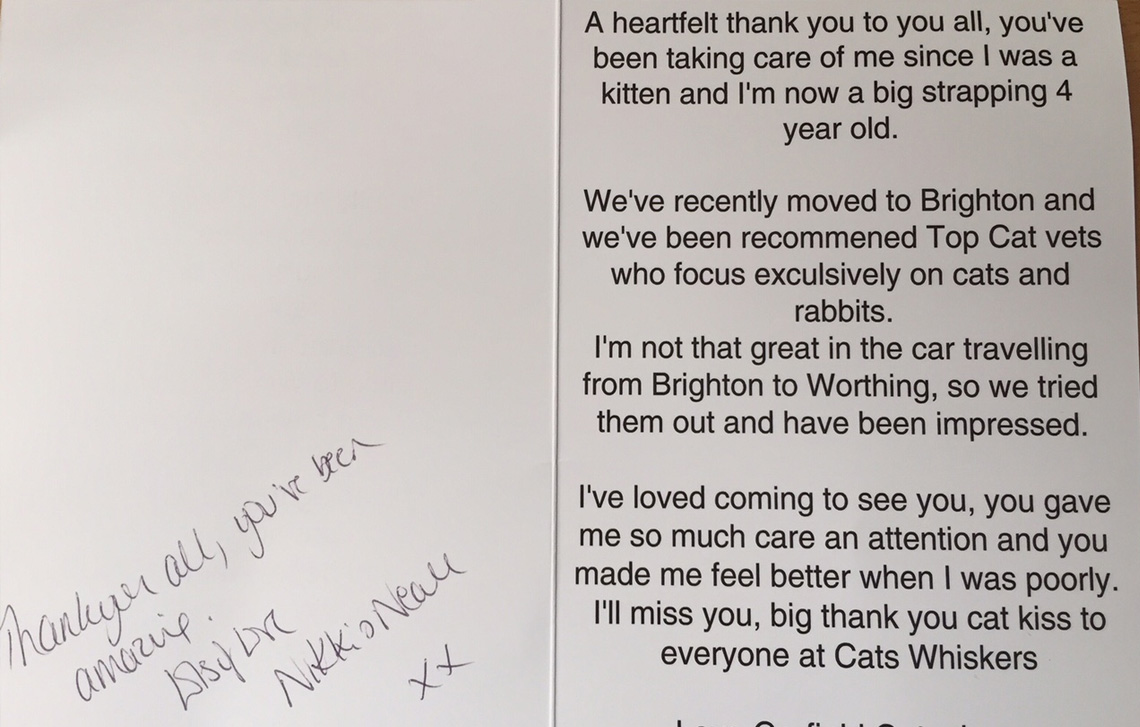 Thankyou all, you've been
amazing.
Big Love
Nikki O'Neall
xx
A heartfelt thank you to you all, you've
been taking care of me since I was a
kitten and I'm now a big strapping 4
year old.
We've recently moved to Brighton and
we've been recommened Top Cat vets
who focus exculsively on cats and
rabbits.
I'm not that great in the car travelling
from Brighton to Worthing, so we tried
them out and have been impressed.
I've loved coming to see you, you gave
me so much care an attention and you
made me feel better when I was poorly.
I'll miss you, big thank you cat kiss to
everyone at Cats Whiskers